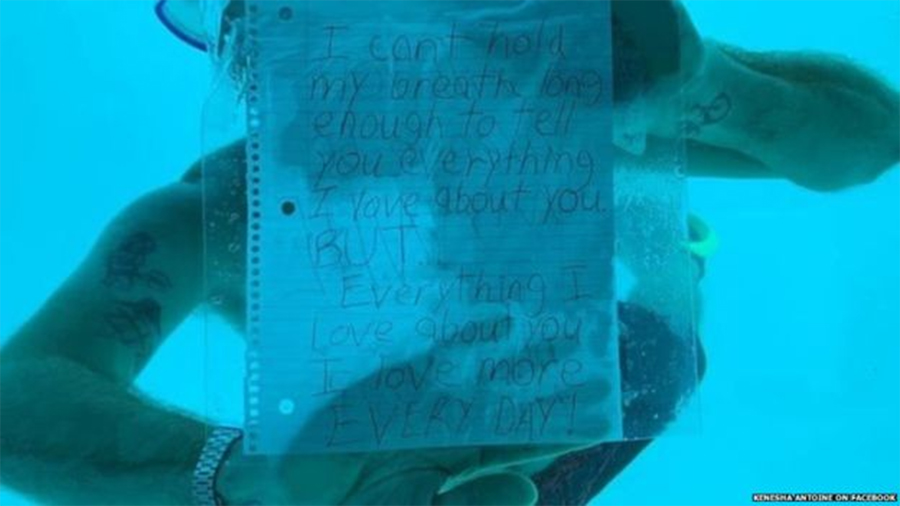 I cant hold
my breath long
enough to tell
you everything
I love about you
BUT...
Everything I
Love about you
I love more
EVERY DAY!
KENESHA ANTOINE ON FACEBOOK